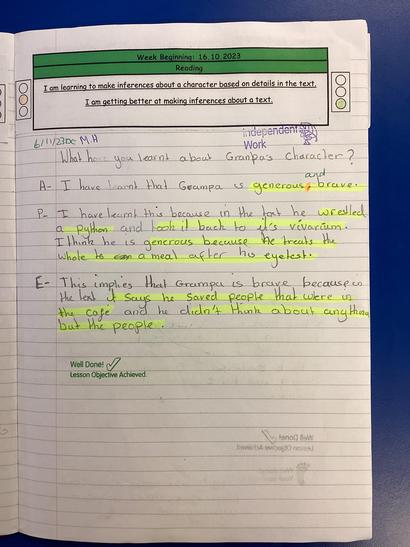 Week Beginning: 16.10.2023
Reading
I am learning to make inferences about a character based on details in the text.
I am getting better at making inferences about a text.
independent
Work
6/11/23 M.H
What have you learnt about Granpa's character?
and
A- I have learnt that Grampa is generous, brave.
P- I have learnt this because in the text he wrestled
a python and took it back to it's vivarium.
I think he is generous because he treats the
whole to a meal after his eyetest.
E- This implies that Grampa is brave because in
the text it says he saved people that were in
the cafe and he didn't think about anything
but the people.
Well Done!
Lesson Objective Achieved.